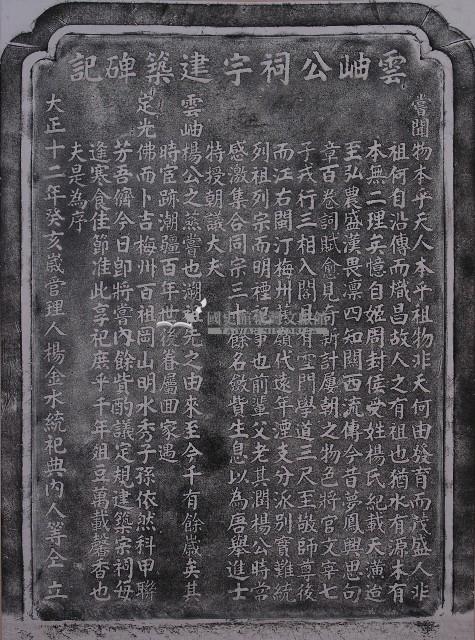 雲岫公祠宇建築碑記
嘗聞物本乎天人本乎祖物非天何由發育而茂盛人非
祖何自沿傳而熾昌故人之有祖也猶水有源木有
本無二理矣憶自姬周封侯受姓楊氏紀載天潢迨
至弘農盛漢畏凜四知關西流傳今昔夢鳳興思句
章百卷詞賦愈見奇新計屢朝之物色將官文宰七
子戎行三相入閣且有雪門學道三尺至敬師尊後
而江右閩汀梅州接嶺代遠年湮支分派別實難統
列祖列宗而明禋祀事也前輩父老其潤楊公時常
感激集合同宗三十餘名斂貲生息以為唐舉進士
特授朝議大夫
雲岫楊公之蒸嘗也溯先之由來至今千有餘歲矣其
時宦跡潮疆百年世後眷屬回家遇
定光佛而卜吉梅州百祖岡山明水秀子孫依然科甲聯
芳吾儕今日即將嘗內餘貲酌議定規建築宗祠每
逢寒食佳節准此享祀庶乎千年俎豆萬載馨香也
夫是為序
大正十二年癸亥歲管理人楊金水統祀典內人等仝立
國史館臺灣文獻館